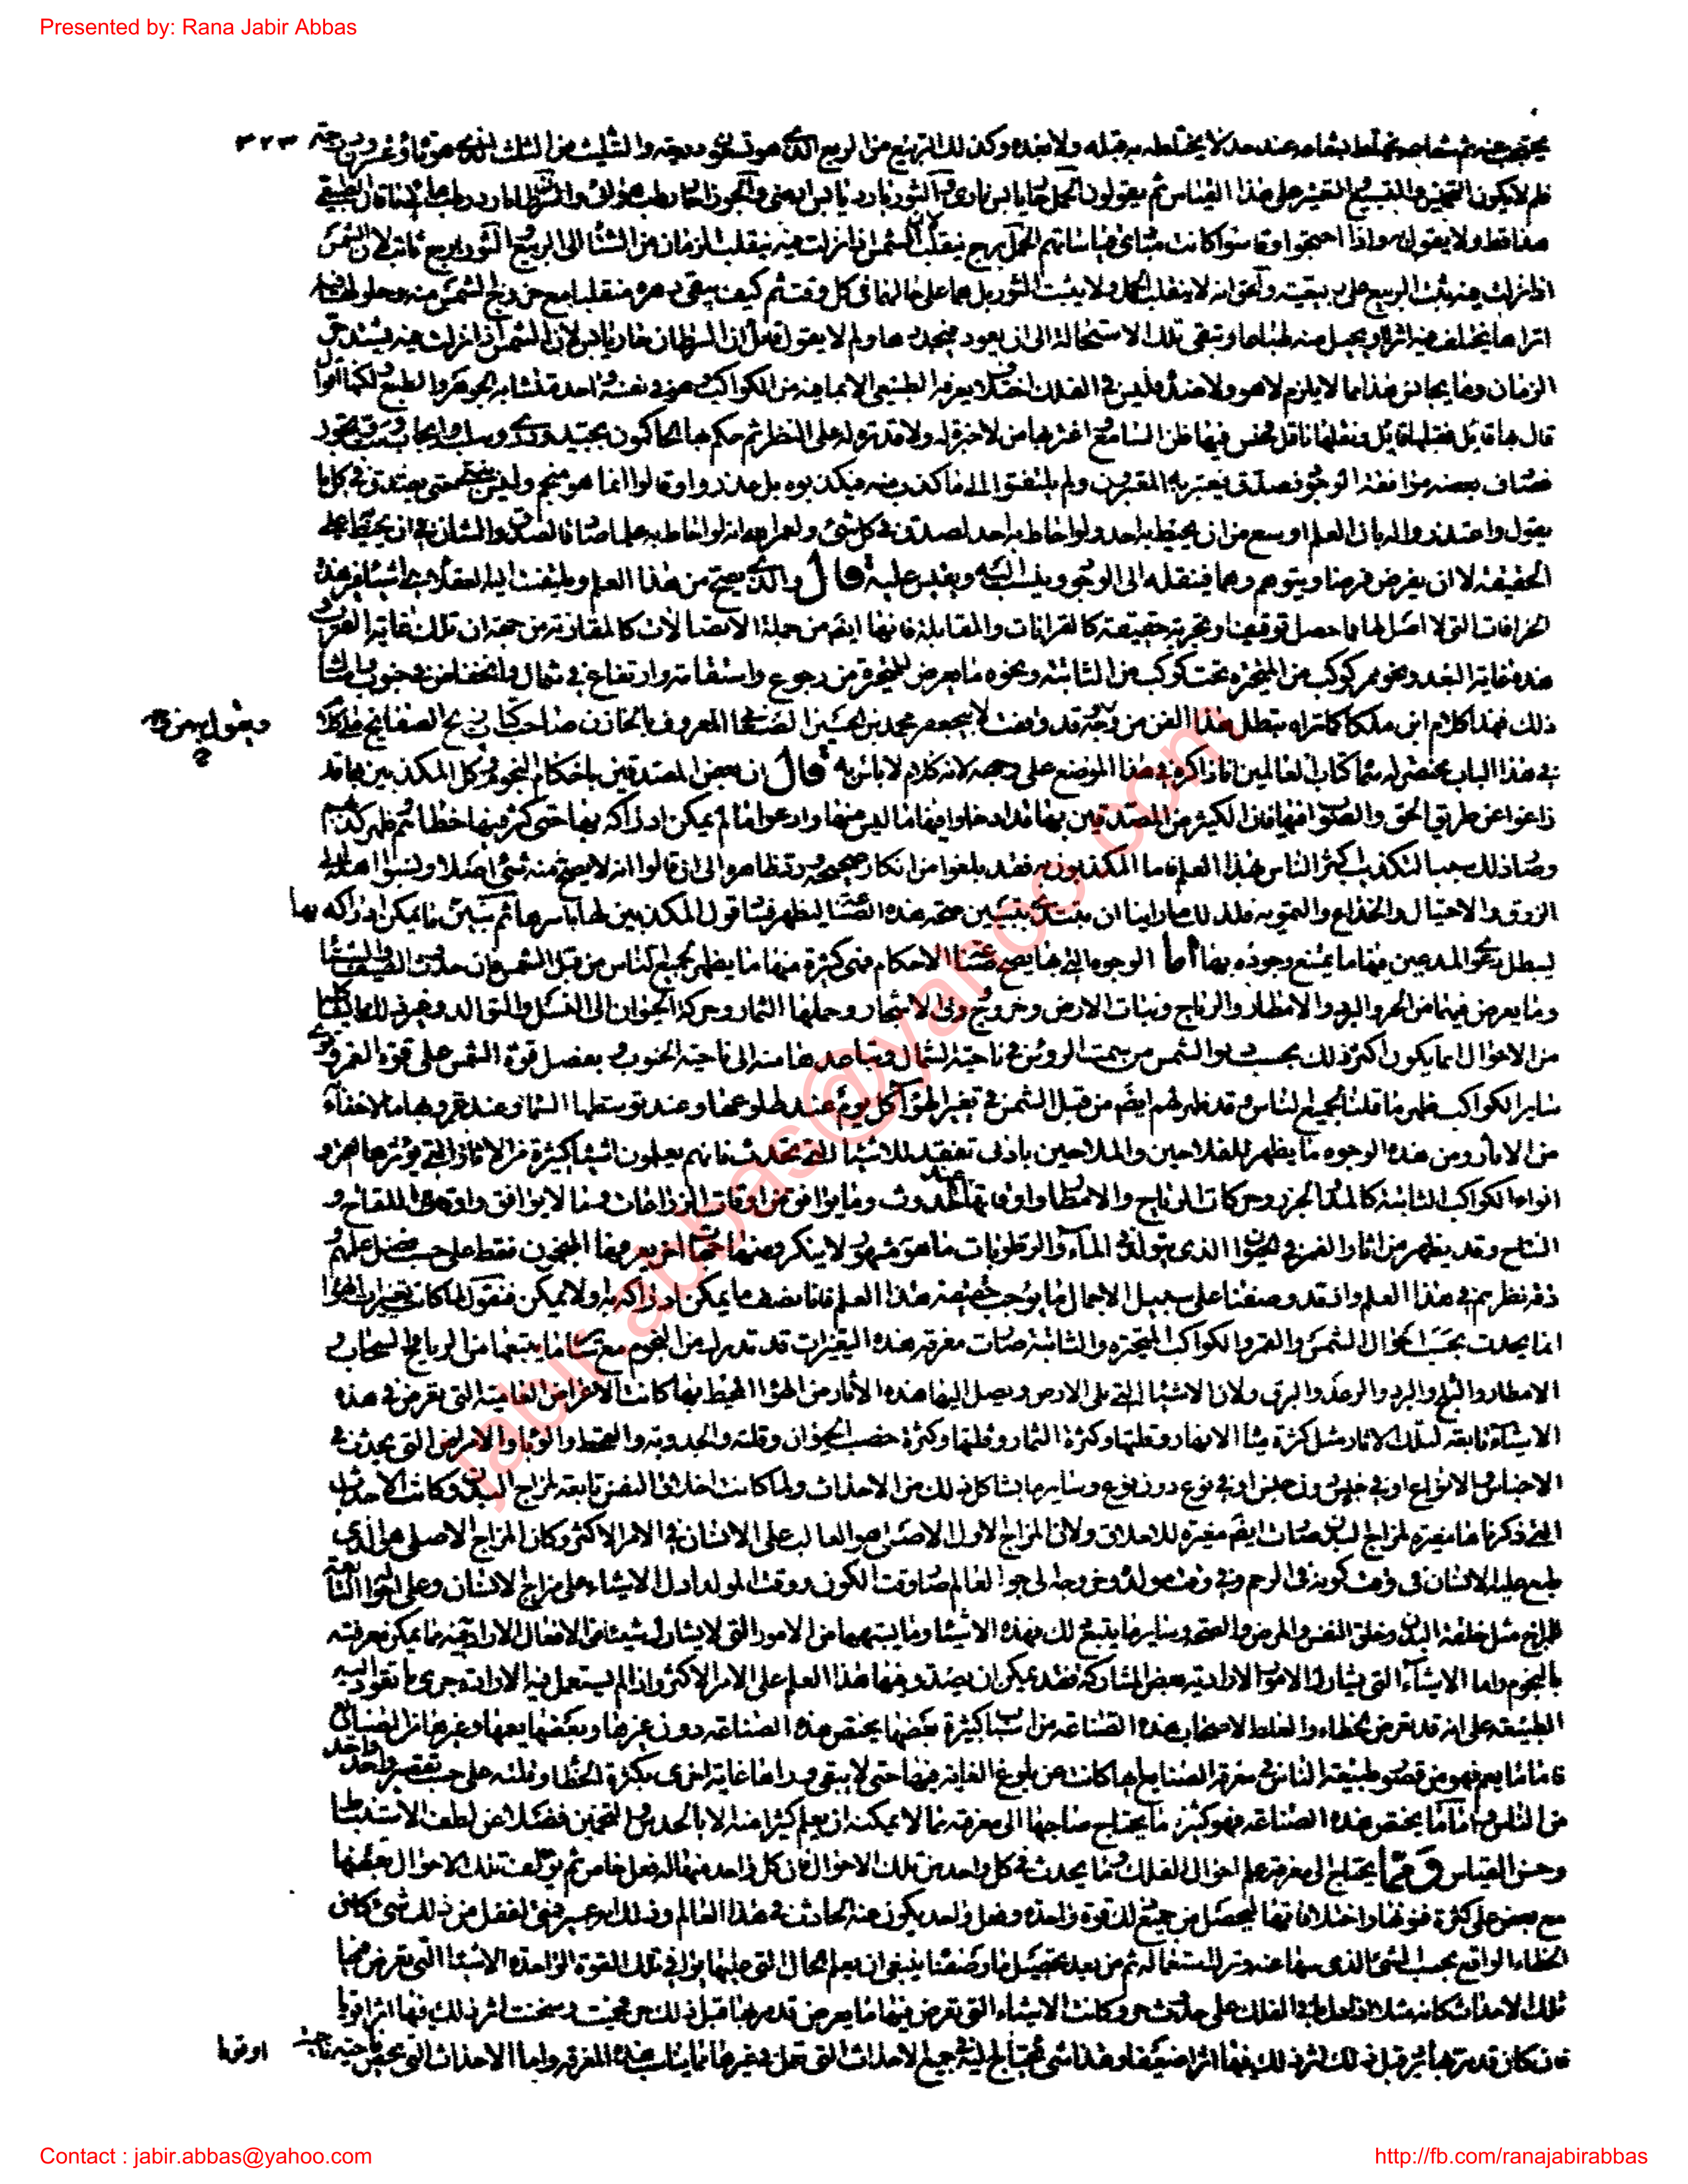 Presented by: Rana Jabir Abbas
٣٢٣
ولا بعده وكذلك التربيع من الربيع الذي هو تسعون درجة والتثليث من الثلث الذي هو مائة وعشرون درجة
فلم لا يكون على هذا القياس ثم يقولون الحمل حار يابس ناري والثور بارد يابس ارضي والجوزا حار رطب هوائي والسرطان بارد رطب مائي ما قال الطبيعي
هذا قط ولا يقول به واذا احتجوا وقاسوا كانت مبادي قياساتهم الحمل برج ينقلب لان الشمس اذا نزلت فيه ينقلب الزمان من الشتا الى الربيع والثور برج ثابت لان الشمس
اذا نزلت فيه يثبت الربيع على ربيعيته والحق انه لا ينقلب الحمل ولا يثبت الثور بل هما على حالهما في كل وقت ثم كيف يبقى دهره منقلبا مع خروج الشمس منه وحلولها فيه
اتراها يختلف فيه اثرا ويحيل منه طباعا وتبقى تلك الاستحالة الى ان يعود فيجددها ولم لا يقول قائل ان السرطان حار يابس لان الشمس اذا نزلت فيه يشتد حر
الزمان وما يجانس هذا مما لا يلزم لا هو ولا ضده فليس في الفلك اختلاف يعرفه الطبيعي الا بما فيه من الكواكب وهو في نفسه واحد متشابه الجوهر والطبع لكنها اقوال
قال بها قايل فقبلها قابل ونقلها ناقل فحسن فيها ظن السامع اغتر بها من لا خبرة له ولا قدرة له على النظر ثم حكم بها الحاكمون بجيد وردي وسلب وايجاب
فصادف بعضه موافقة الوجود فصدق فيعتبر به المعتبرون ولم يلتفتوا الى ما كذب منه فيكذبوه بل عذروا وقالوا انما هو منجم وليس بنبي حتى يصدق في كل ما
يقول واعتذروا له بان العلم اوسع من ان يحيط به احد ولو احاط به احد لصدق في كل شيء ولعمري انه لو احاط به علما صادقا لصدق والشان في ان يحيط به على
الحقيقة لا ان يفرض فرضا ويتوهم وهما فينقله الى الوجود وينسب اليه ويقيس عليه قال والذي يصح من هذا العلم ويلتفت اليه العقلاء هي اشياء غير هذه
الخرافات التي لا اصل لها مما حصل توقيف او تجربة حقيقة كالقرانات والمقابلة فانها ايضا من جملة الاتصالات كالمقارنة من جهة ان تلك غاية القرب
هذه غاية البعد ونحو ممر كوكب من المتحيرة تحت كوكب من الثابتة ونحوه ما يعرض للمتحيرة من رجوع واستقامة وارتفاع في شمال وانخفاض في جنوب وامثال
ذلك فهذا كلام ابن ملكا كما تراه يبطل هذا الفن من وجه وقد وقفت لابي جعفر محمد بن الحسين الصنعاني المعروف بالخازن صاحب كتاب زيج الصفايح على كلام
في هذا الباب مختصر له سماه كتاب العالمين انا ذاكره في هذا الموضع على وجهه لانه كلام لا باس به قال ان بعض المصدقين باحكام النجوم وكل المكذبين بها قد
زاغوا عن طريق الحق والصواب فيها فان الكثير من المصدقين بها قد ادخلوا فيها ما ليس منها وادعوا ما لم يمكن ادراكه بها حتى كثر فيها خطاؤهم وظهر كذبهم
وصار ذلك سببا لتكذيب اكثر الناس بهذا العلم فاما المكذبون به فقد بلغوا من انكار صحيحه ورد ظاهره الى ان قالوا انه لا يصح منه شيء اصلا ونسبوا اهله الى
الزرق والاحتيال والخداع والتمويه فلذلك راينا ان نبتدي بتبيين صحة هذه الصناعة ليظهر فساد قول المكذبين لها باسرها ثم نبين ما يمكن ادراكه بها
ليبطل دعوى المدعين فيها ما يمتنع وجوده بها اما الوجوه التي بها يصح صناعة الاحكام فهي كثيرة منها ما يظهر لجميع الناس من قبل الشمس فان حدوث الصيف والشتا
وما يعرض فيهما من الحر والبرد والامطار والرياح ونبات الارض وخروج ورق الاشجار وحملها الثمار وحركة الحيوان الى النسل والتوالد وغير ذلك مما يشاكله
من الاحوال انما يكون اكثر ذلك بحسب دنو الشمس من سمت الروس في ناحية الشمال وتباعدها منه الى ناحية الجنوب وبفضل قوة الشمس على قوة القمر وقوى
ساير الكواكب ظهر ما قلنا لجميع الناس وقد ظهر لهم ايضا من قبل الشمس في تغير الهواء كل يوم عند طلوعها وعند توسطها السماء وعند غروبها ما لا خفاء
من الاثار ومن هذه الوجوه ما يظهر للفلاحين والملاحين بادنى تفقد للاشياء التي تحدث فانهم يعلمون اشياء كثيرة من الاثار التي يوثرها القمر و
انواء الكواكب الثابتة كالمد والجزر وحركات الرياح والامطار واوقاتها عند الحدوث وما يوافق من اوقات الزراعات وما لا يوافق واوقات اللقاح و
النتاج وقد يظهر من اثار القمر في الحيوان الذي يتولد في الماء والرطوبات ما هو مشهور لا ينكر ومنها اخر يعرفها المنجمون فقط على حسب فضل علمهم و
دقة نظرهم في هذا العلم واذ قد وصفنا على سبيل الاجمال ما يوجب حقيقة هذا العلم فانا نصف ما يمكن ادراكه به او لا يمكن فنقول لما كانت تغيرات الهواء
انما يحدث بحسب احوال الشمس والقمر والكواكب المتحيرة والثابتة صارت معرفة هذه التغيرات قد تدرك من النجوم مع ساير ما يتبعها من الرياح والسحاب و
الامطار والثلج والبرد والرعد والبرق ولان الاشياء التي على الارض ويصل اليها هذه الاثار من الهواء المحيط بها كانت الاعراض العامية التي تعرض في هذه
الاشياء تابعة لتلك الاثار مثل كثرة مياه الانهار وقلتها وكثرة الثمار وقلتها وكثرة خصب الحيوان وقلته والجدوبة والقحط والوباء والامراض التي يحدث في
الاجناس والانواع او في جنس دون جنس او في نوع دون نوع وساير ما يشاكل ذلك من الاحداث ولما كانت اخلاق النفس تابعة لمزاج البدن وكانت الاحداث
التي ذكرناها مغيرة لمزاج البدن صارت ايضا مغيرة للاخلاق ولان المزاج الاول الاصلي هو الغالب على الانسان في الامر الاكثر وكان المزاج الاصلي هو الذي
طبع عليه الانسان في وقت كونه في الرحم وفي وقت مولده وخروجه الى جو العالم صار وقت الكون ووقت المولد ادل الاشياء على مزاج الانسان وعلى احواله التابعة
للمزاج مثل خلقة البدن وخلق النفس والمرض والصحة وساير ما يتبع ذلك فهذه الاشياء وما يشبهها من الامور التي لا يشارك شيئا من الافعال الارادية مما يمكن معرفته
بالنجوم واما الاشياء التي يشارك الامور الارادية بعض المشاركة فقد يمكن ان يصدق فيها هذا العلم على الامر الاكثر واذا لم يستعمل فيه الارادة جرى على ما تقود اليه
الطبيعة على انه قد تعرض الخطاء والغلط لاصحاب هذه الصناعة من اسباب كثيرة بعضها يختص هذه الصناعة دون غيرها وبعضها يعمها وغيرها من الصنايع
فاما ما يعم فهو من قصور طبيعة الناس في معرفة الصنايع ايها كانت عن بلوغ الغاية فيها حتى لا يبقى وراءها غاية اخرى بكثرة الخطاء وقلته على حسب تقصير واحد واحد
من الناس واما ما يختص هذه الصناعة فهو كثير ما يحتاج صاحبها الى معرفته مما لا يمكنه ان يعلم كثيرا منه الا بالحدس والتخمين فضلا عن لطف الاستنباط
وحسن القياس ومما يحتاج الى معرفته علم احوال الفلك ومما يحدث في كل واحد من تلك الاحوال فان كل واحد منها له فعل خاص ثم يؤلف تلك الاحوال بعضها
مع بعض على كثرة فنونها واختلافاتها ليحصل من جميع ذلك قوة واحدة وفعل واحد يكون عنه الحادث في هذا العالم وذلك امر عسير فمتى اغفل من ذلك شيء كان
الخطاء الواقع بحسب الشيء الذي سها عنه وترك استعماله ثم من بعد تحصيل ما وصفنا ينبغي ان يعلم الحال التي عليها يوافي تلك القوة الواحدة الاشياء التي تعرض فيها
تلك الاحداث كانه مثلا اذا دل ما في الفلك على حدوث حر وكانت الاشياء التي تعرض فيها ما يعرض قد مر بها قبل ذلك حر فحميت وسخنت اثر ذلك فيها اثرا قويا
فان كان قد مر بها برد قبل ذلك اثر ذلك فيها اثرا ضعيفا وهذا شيء يحتاج اليه في جميع الاحداث التي تعمل في غيرها مما يناسب هذه المعرفة واما الاحداث التي تخص ناحية ناحية
jabir.abbas@yahoo.com
Contact : jabir.abbas@yahoo.com
http://fb.com/ranajabirabbas